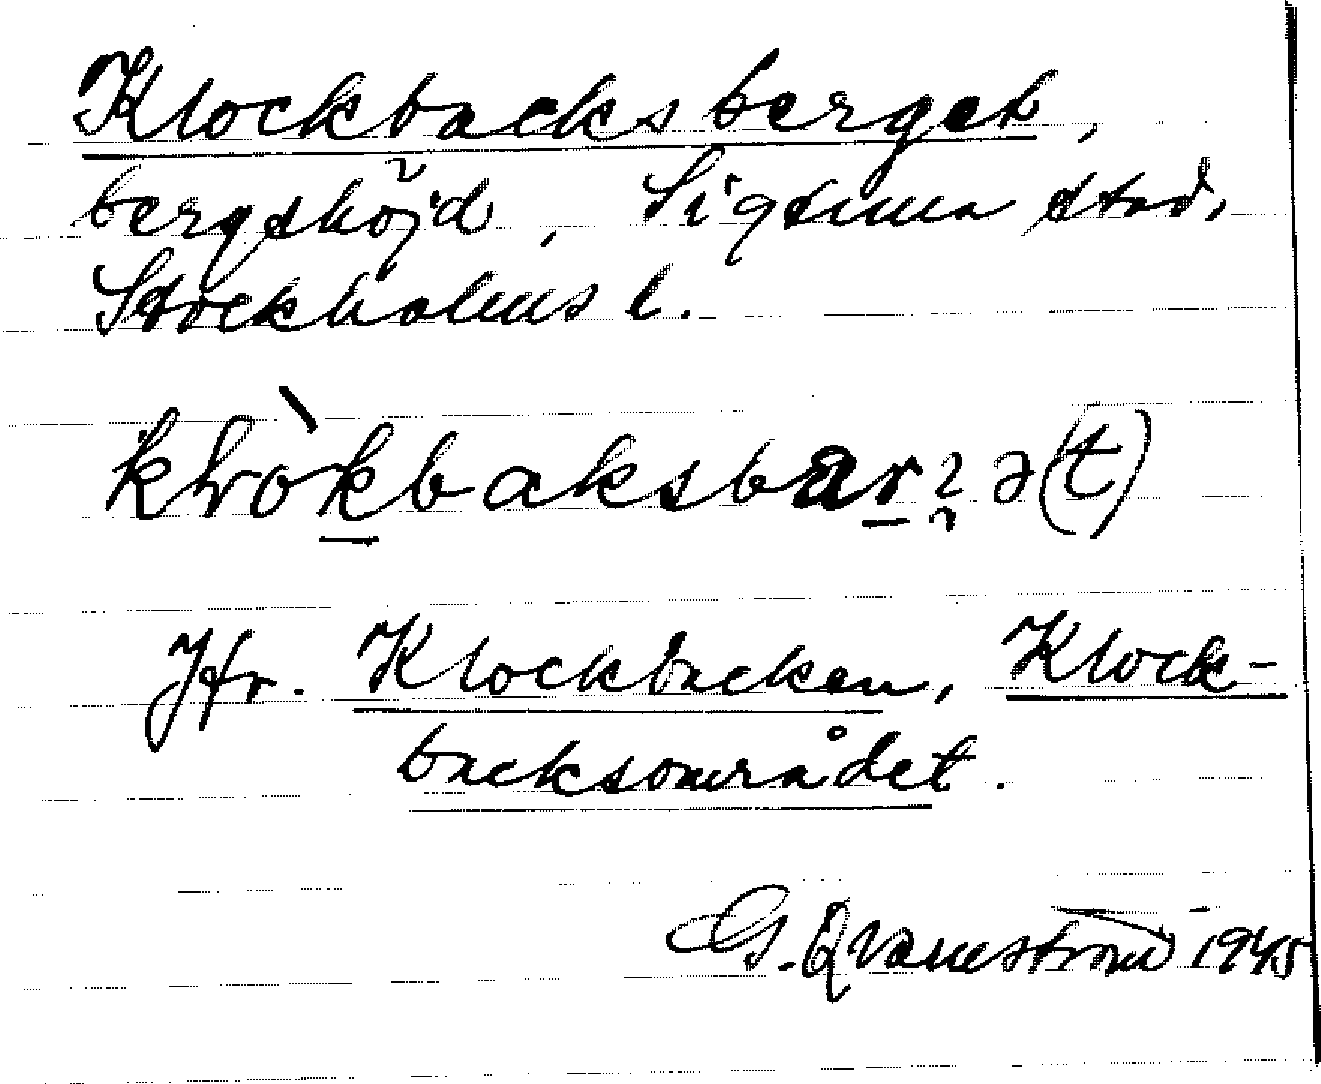 Klockbacksberget,
bergshöjd, Sigtuna stad,
Stockholms l.
Jfr. Klockbacken, Klock-
backsområdet.
G. Qvarnström 1945